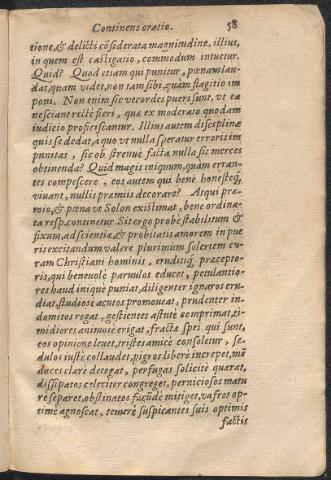 Continens oratio. 58
tione, & delicti cōsiderata magnitudine, illius,
in quem est castigatio, commodum intuetur.
Quid? Quod etiam qui punitur, pœnam lau-
dat, quam videt, non tam sibi, quàm flagitio im
poni. Non enim sic vecordes pueri sunt, vt ea
nesciant rectè fieri, quæ ex moderato quodam
iudicio proficiscantur. Illius autem disciplinæ
quis se dedat, à quo vt nulla speratur erroris im
punitas, sic ob strenuè facta nulla sit merces
obtinenda? Quid magis iniquum, quàm erran-
tes compescere, eos autem qui benè honesteq́;
viuant, nullis præmiis decorare? Atqui præ-
mio, & pœna vt Solon existimat, bene ordina-
ta resp. continetur. Sit ergo probè stabilitum &
fixum, ad scientiæ, & probitatis amorem in pue
ris excitandum valere plurimùm solertem cu-
ram Christiani hominis, eruditiq́; præcepto-
ris, qui beneuolè paruulos educet, petulantio-
res haud iniquè puniat, diligenter ignaros eru-
diat, studiosè acutos promoueat, prudenter in-
domitos regat, gestientes astutè comprimat, ti-
midiores animosè erigat, fracta spei qui sunt,
eos opinione leuet, tristes amicè consoletur, se-
dulos iustè collaudet, pigros liberè increpet, mē
daces clarè detegat, perfugas solicitè quærat,
dissipatos celeriter congreget, perniciosos matu
rè separet, obstinatos facundè mitiget, vafros op-
timè agnoscat, temerè suspicantes suis optimis
factis